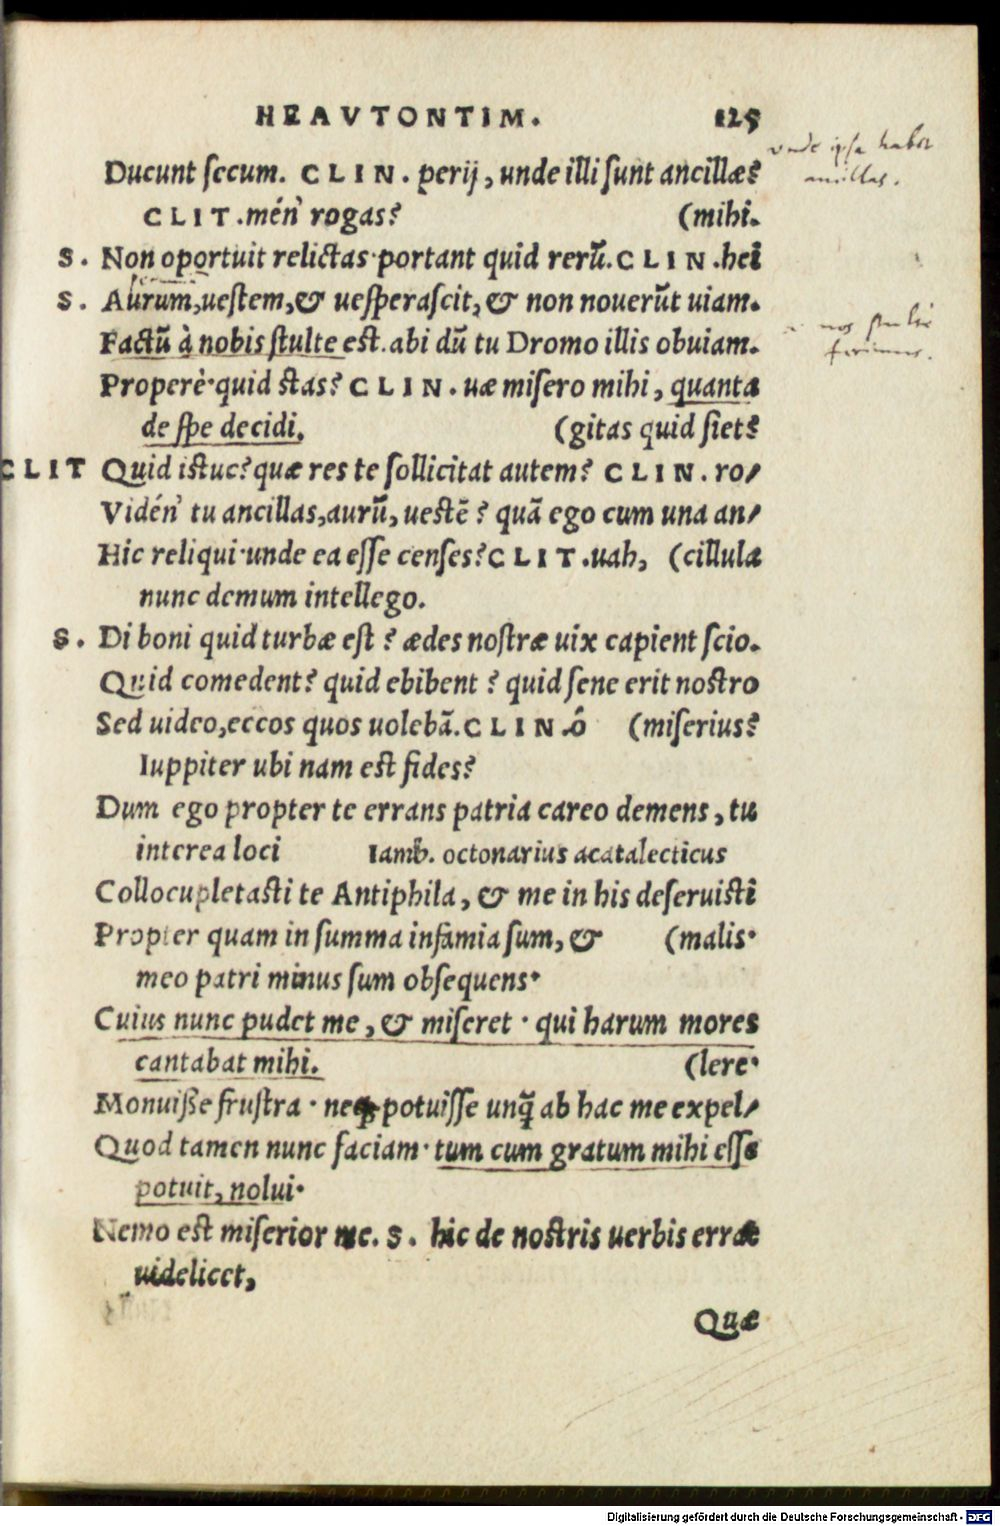 HEAVTONTIM. 125
Ducunt secum. CLIN. perij, unde illi sunt ancillæ?
CLIT. mén' rogas? (mihi.
S. Non oportuit relictas· portant quid rerū. CLIN. hei
S. Aurum, uestem, & uesperascit, & non nouerūt uiam.
Factū à nobis stulte est. abi dū tu Dromo illis obuiam.
Properè· quid stas? CLIN. uæ misero mihi, quanta
de spe decidi. (gitas quid siet?
CLIT Quid istuc? quæ res te sollicitat autem? CLIN. ro/
Vidén' tu ancillas, aurū, uestē? quā ego cum una an/
Hic reliqui· unde ea esse censes? CLIT. uah, (cillula
nunc demum intellego.
S. Di boni quid turbæ est? ædes nostræ uix capient scio.
Quid comedent? quid ebibent? quid sene erit nostro
Sed uideo, eccos quos uolebā. CLIN. ô (miserius?
Iuppiter ubi nam est fides?
Dum ego propter te errans patria careo demens, tu
interea loci Iamb. octonarius acatalecticus
Collocupletasti te Antiphila, & me in his deseruisti
Propter quam in summa infamia sum, & (malis·
meo patri minus sum obsequens·
Cuius nunc pudet me, & miseret· qui harum mores
cantabat mihi. (lere·
Monuisse frustra· neq; potuisse unq̄ ab hac me expel/
Quod tamen nunc faciam· tum cum gratum mihi esse
potuit, nolui·
Nemo est miserior me. S. hic de nostris uerbis erræ
uidelicet,
Quæ
unde ipsa habet
ancillas.
Digitalisierung gefördert durch die Deutsche Forschungsgemeinschaft - DFG